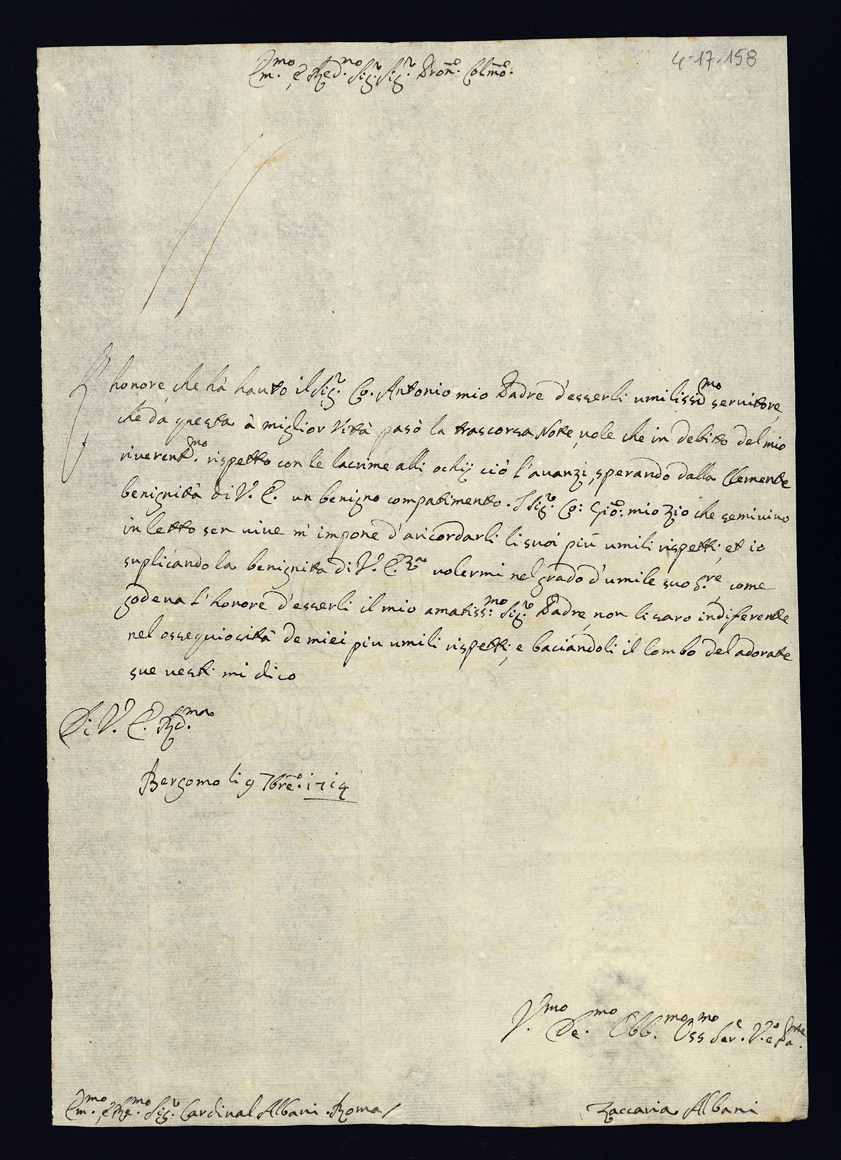 4-17-158
Em.mo e Red.mo Sig.r Sig.r Pron. Colmo.
L' honore che hà hauto il Sig.r Co. Antonio mio Padre d'esserli umilissmo seruitore,
che da questa à miglior Vità pasò la trascorsa Note, uole che in debito del mio
riuerent.mo rispetto con le lacrime alli ochij ciò l'auanzi, sperando dalla Clemente
benignità di V. E. un benigno compatimento. Il Sig.r Co: Gio: mio Zio che semiuiuo
in letto sen uiue m' impone d'aricordarli li suoi più umili rispetti, et io
suplicando la benignita di V. E. R.ma uolermi nel grado d'umile suo s.re come
godeua l'honore d'esserli il mio amatiss.mo Sig.r Padre non li saro indiferente
nel ossequiosità de miei piu umili rispetti, e baciandoli il lombo del adorate
sue uesti mi dico
Di V. E. Rd.ma
Bergomo li 9 7bre. 1714
V.mo De.mo Obb.mo Oss.mo Ser.e
Em.mo e Re.mo Sig.r Cardinal Albani. Roma
Zaccaria Albani